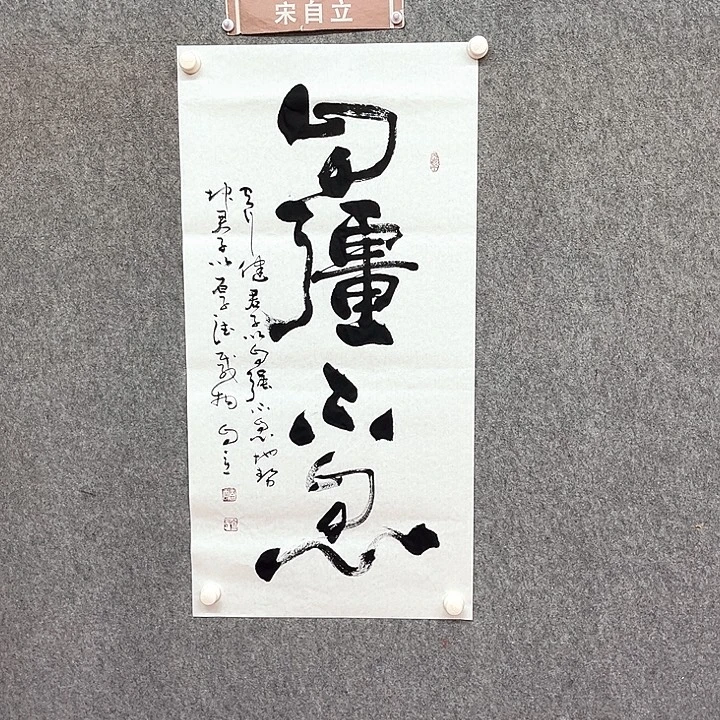 宋自立
自彊不息
天行健君子以自强不息地势
坤君子以厚德载物 自立